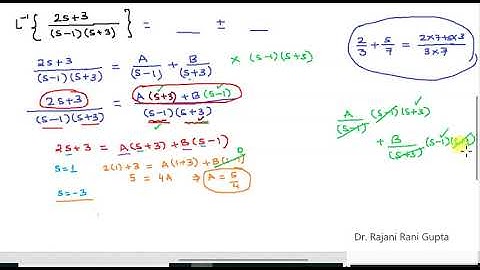 L⁻¹{ (2s+3)/((s-1)(s+3)) } = __ ± __
(2s+3)/((s-1)(s+3)) = A/(s-1) + B/(s+3) × (s-1)(s+3)
(2s+3)/((s-1)(s+3)) = (A(s+3) + B(s-1))/((s-1)(s+3))
2s+3 = A(s+3) + B(s-1)
s=1 2(1)+3 = A(1+3) + B(1-1) 0
5 = 4A ⇒ A = 5/4
s=-3
2/3 + 5/7 = (2×7+5×3)/(3×7)
A/(s-1) (s-1)(s+3)
+ B/(s+3) (s-1)(s+3)
Dr. Rajani Rani Gupta